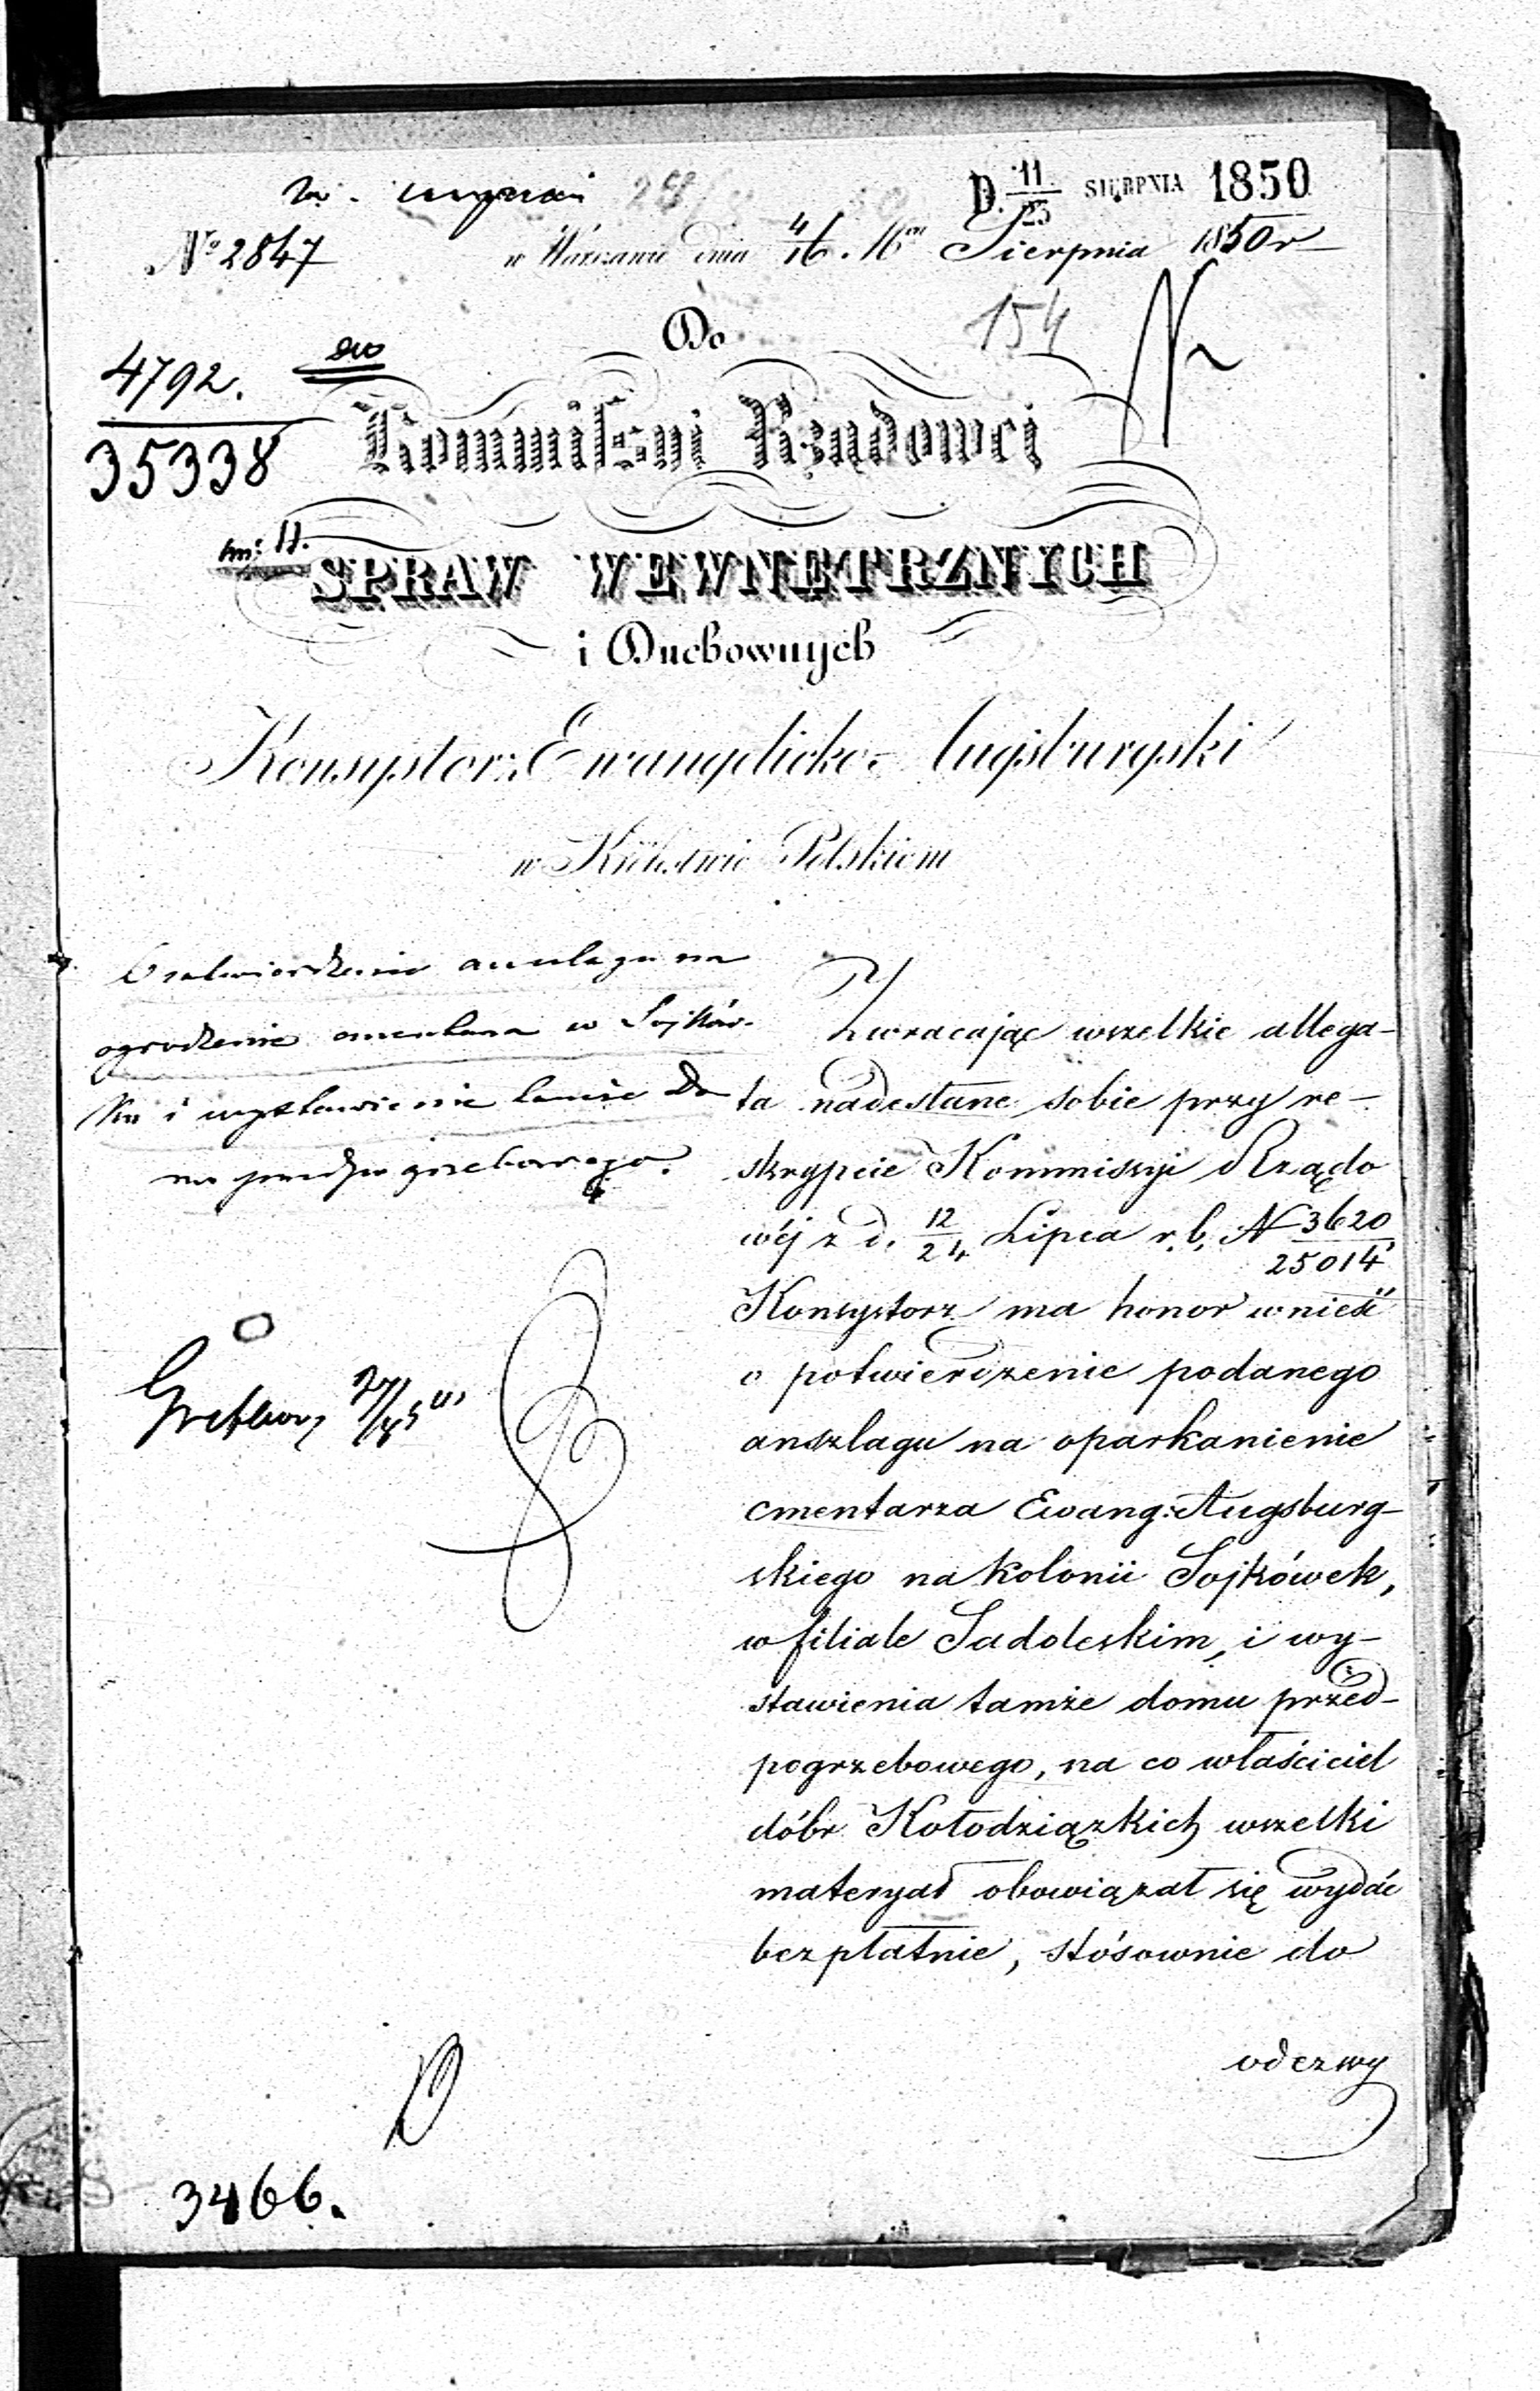 D. 11/23 SIERPNIA 1850
№ 2847
w Warszawie dnia 4/16. 16go Sierpnia 1850 r
154
Do
4792.
35338
Kommissyi Rządowej
SPRAW WEWNĘTRZNYCH
i Duchownych
Konsystorz Ewangelicko-Augsburgski
w Królestwie Polskiem
O zatwierdzenie anszlagu na
ogrodzenie cmentarza w Sojków-
ku i wystawienie tamże do
mu przedpogrzebowego.
Zwracając wszelkie allega-
ta nadesłane sobie przy re-
skrypcie Kommissyi Rządo
wéj z d. 12/24 Lipca r. b. N 3620/25014
Konsystorz ma honor wnieść
o potwierdzenie podanego
anszlagu na oparkanienie
cmentarza Ewang: Augsburg-
skiego na kolonii Sojkówek,
w filiale Sadoleskim, i wy-
stawienia tamże domu przed-
pogrzebowego, na co właściciel
dóbr Kołodziązkich wszelki
materyał obowiązał się wydać
bezpłatnie, stósownie do
odezwy
3466.